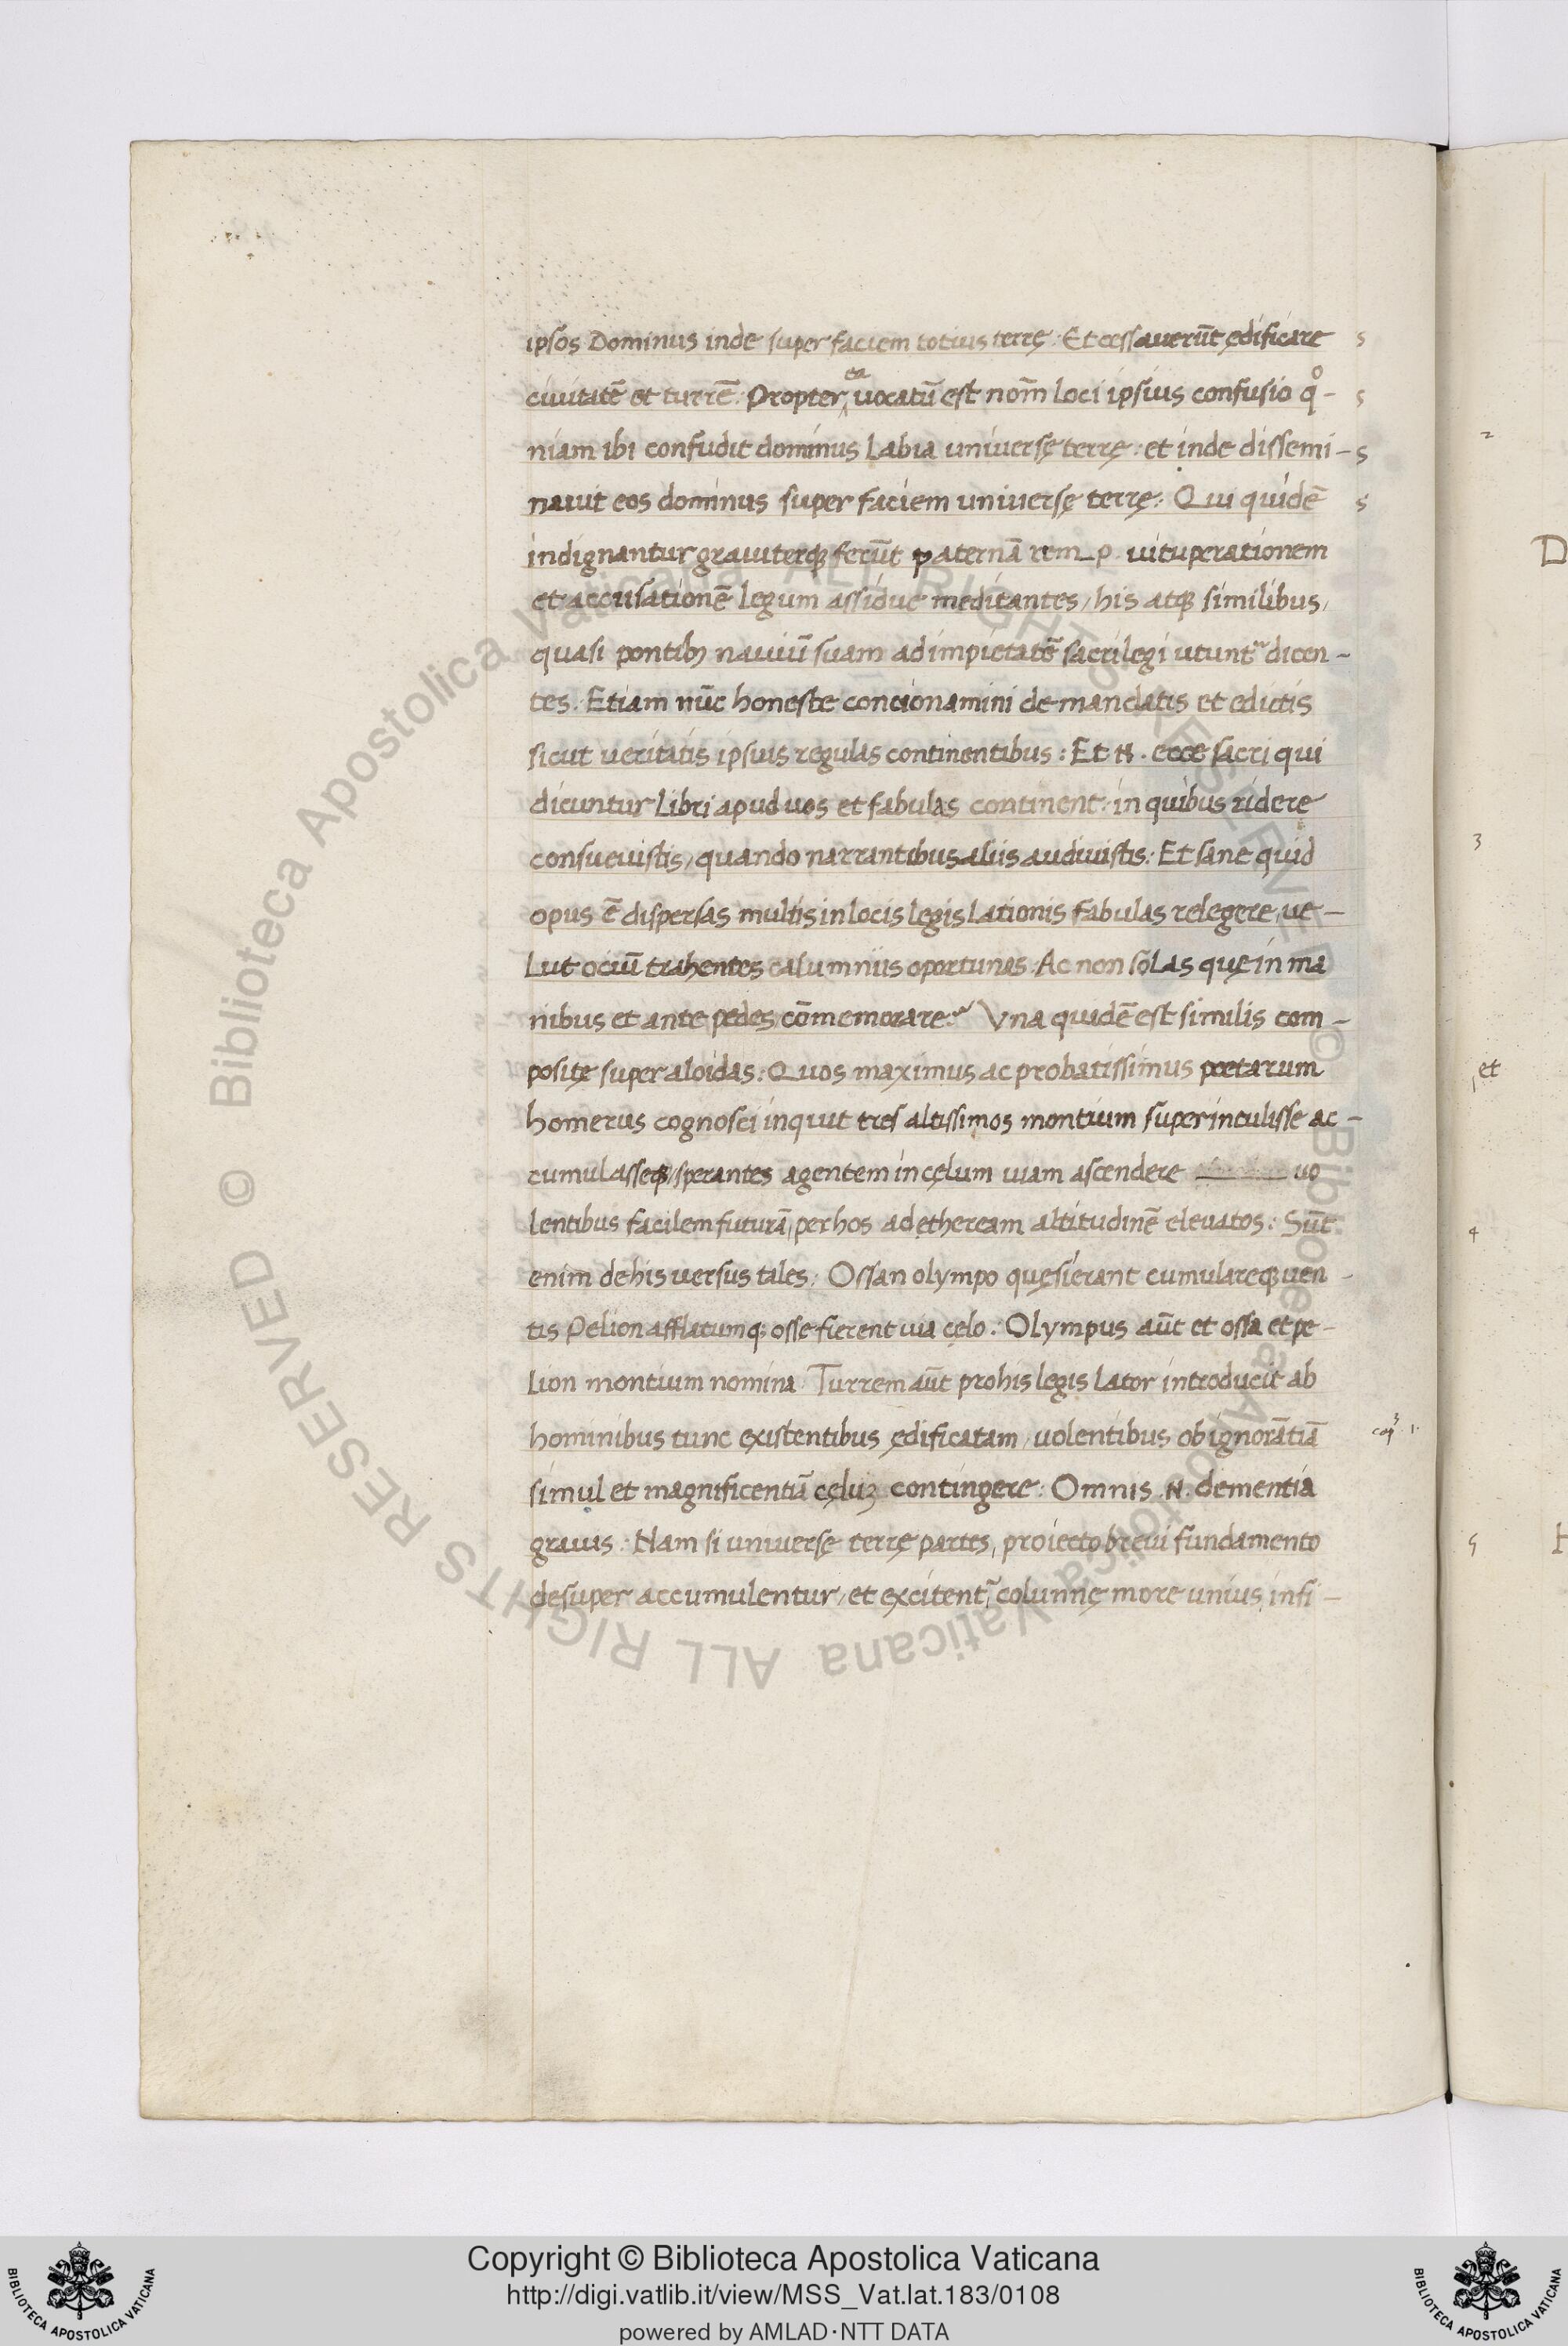 ipsos Dominus inde super faciem totius terrę: Et cessauerūt ędificare s
ciuitatē et turrē: Propter ea uocatū est nom̄ loci ipsius confusio qº- s
niam ibi confudit dominus labia uniuersę terrę: et inde dissemi- s
nauit eos dominus super faciem uniuersę terrę: Qui quidē s
indignantur grauiterqꝫ ferūt paternā rem_p. uituperationem
et accusationē legum assidue meditantes / his atqꝫ similibus /
quasi pontibꝫ nauiū suam ad impietatē sacrilegi utuntᵘʳ dicen-
tes: Etiam nūc honeste concionamini de mandatis et edictis
sicut ueritatis ipsius regulas continentibus: Et N. ecce sacri qui
dicuntur libri apud uos et fabulas continent: in quibus ridere
consueuistis / quando narrantibus aliis audiuistis: Et sane quid
opus ē dispersas multis in locis legis lationis fabulas relegere / ue-
lut ociū trahentes calumniis oportunas: Ac non solas quę in ma
nibus et ante pedes cōmemorare: Vna quidē est similis com-
positę super aloidas: Quos maximus ac probatissimus poetarum
homerus cognosci inquit tres altissimos montium superintulisse ac-
cumulasseqꝫ / sperantes agentem in cęlum uiam ascendere uo
lentibus facilem futurā / per hos ad ętheream altitudinē eleuatos: Sūt
enim de his uersus tales: Ossan olympo quęsierant cumulareqꝫ uen-
tis Pelion afflatumqꝫ osse fierent uia cęlo: Olympus aūt et ossa et pe-
lion montium nomina: Turrem aūt pro his legis lator introducit ab
hominibus tunc existentibus ędificatam / uolentibus ob ignorātiā
simul et magnificentiā cęluꝫ contingere: Omnis .N. dementia
grauis: Nam si uniuersę terrę partes / proiecto breui fundamento
desuper accumulentur / et excitentʳ colunnę more unius infi-
2
D
3
et
4
5
H
© Biblioteca Apostolica Vaticana ALL RIGHTS RESERVED © Biblioteca Apostolica Vaticana ALL RIGHTS RESERVED
BIBLIOTECA APOSTOLICA VATICANA
Copyright © Biblioteca Apostolica Vaticana
http://digi.vatlib.it/view/MSS_Vat.lat.183/0108
powered by AMLAD·NTT DATA
BIBLIOTECA APOSTOLICA VATICANA